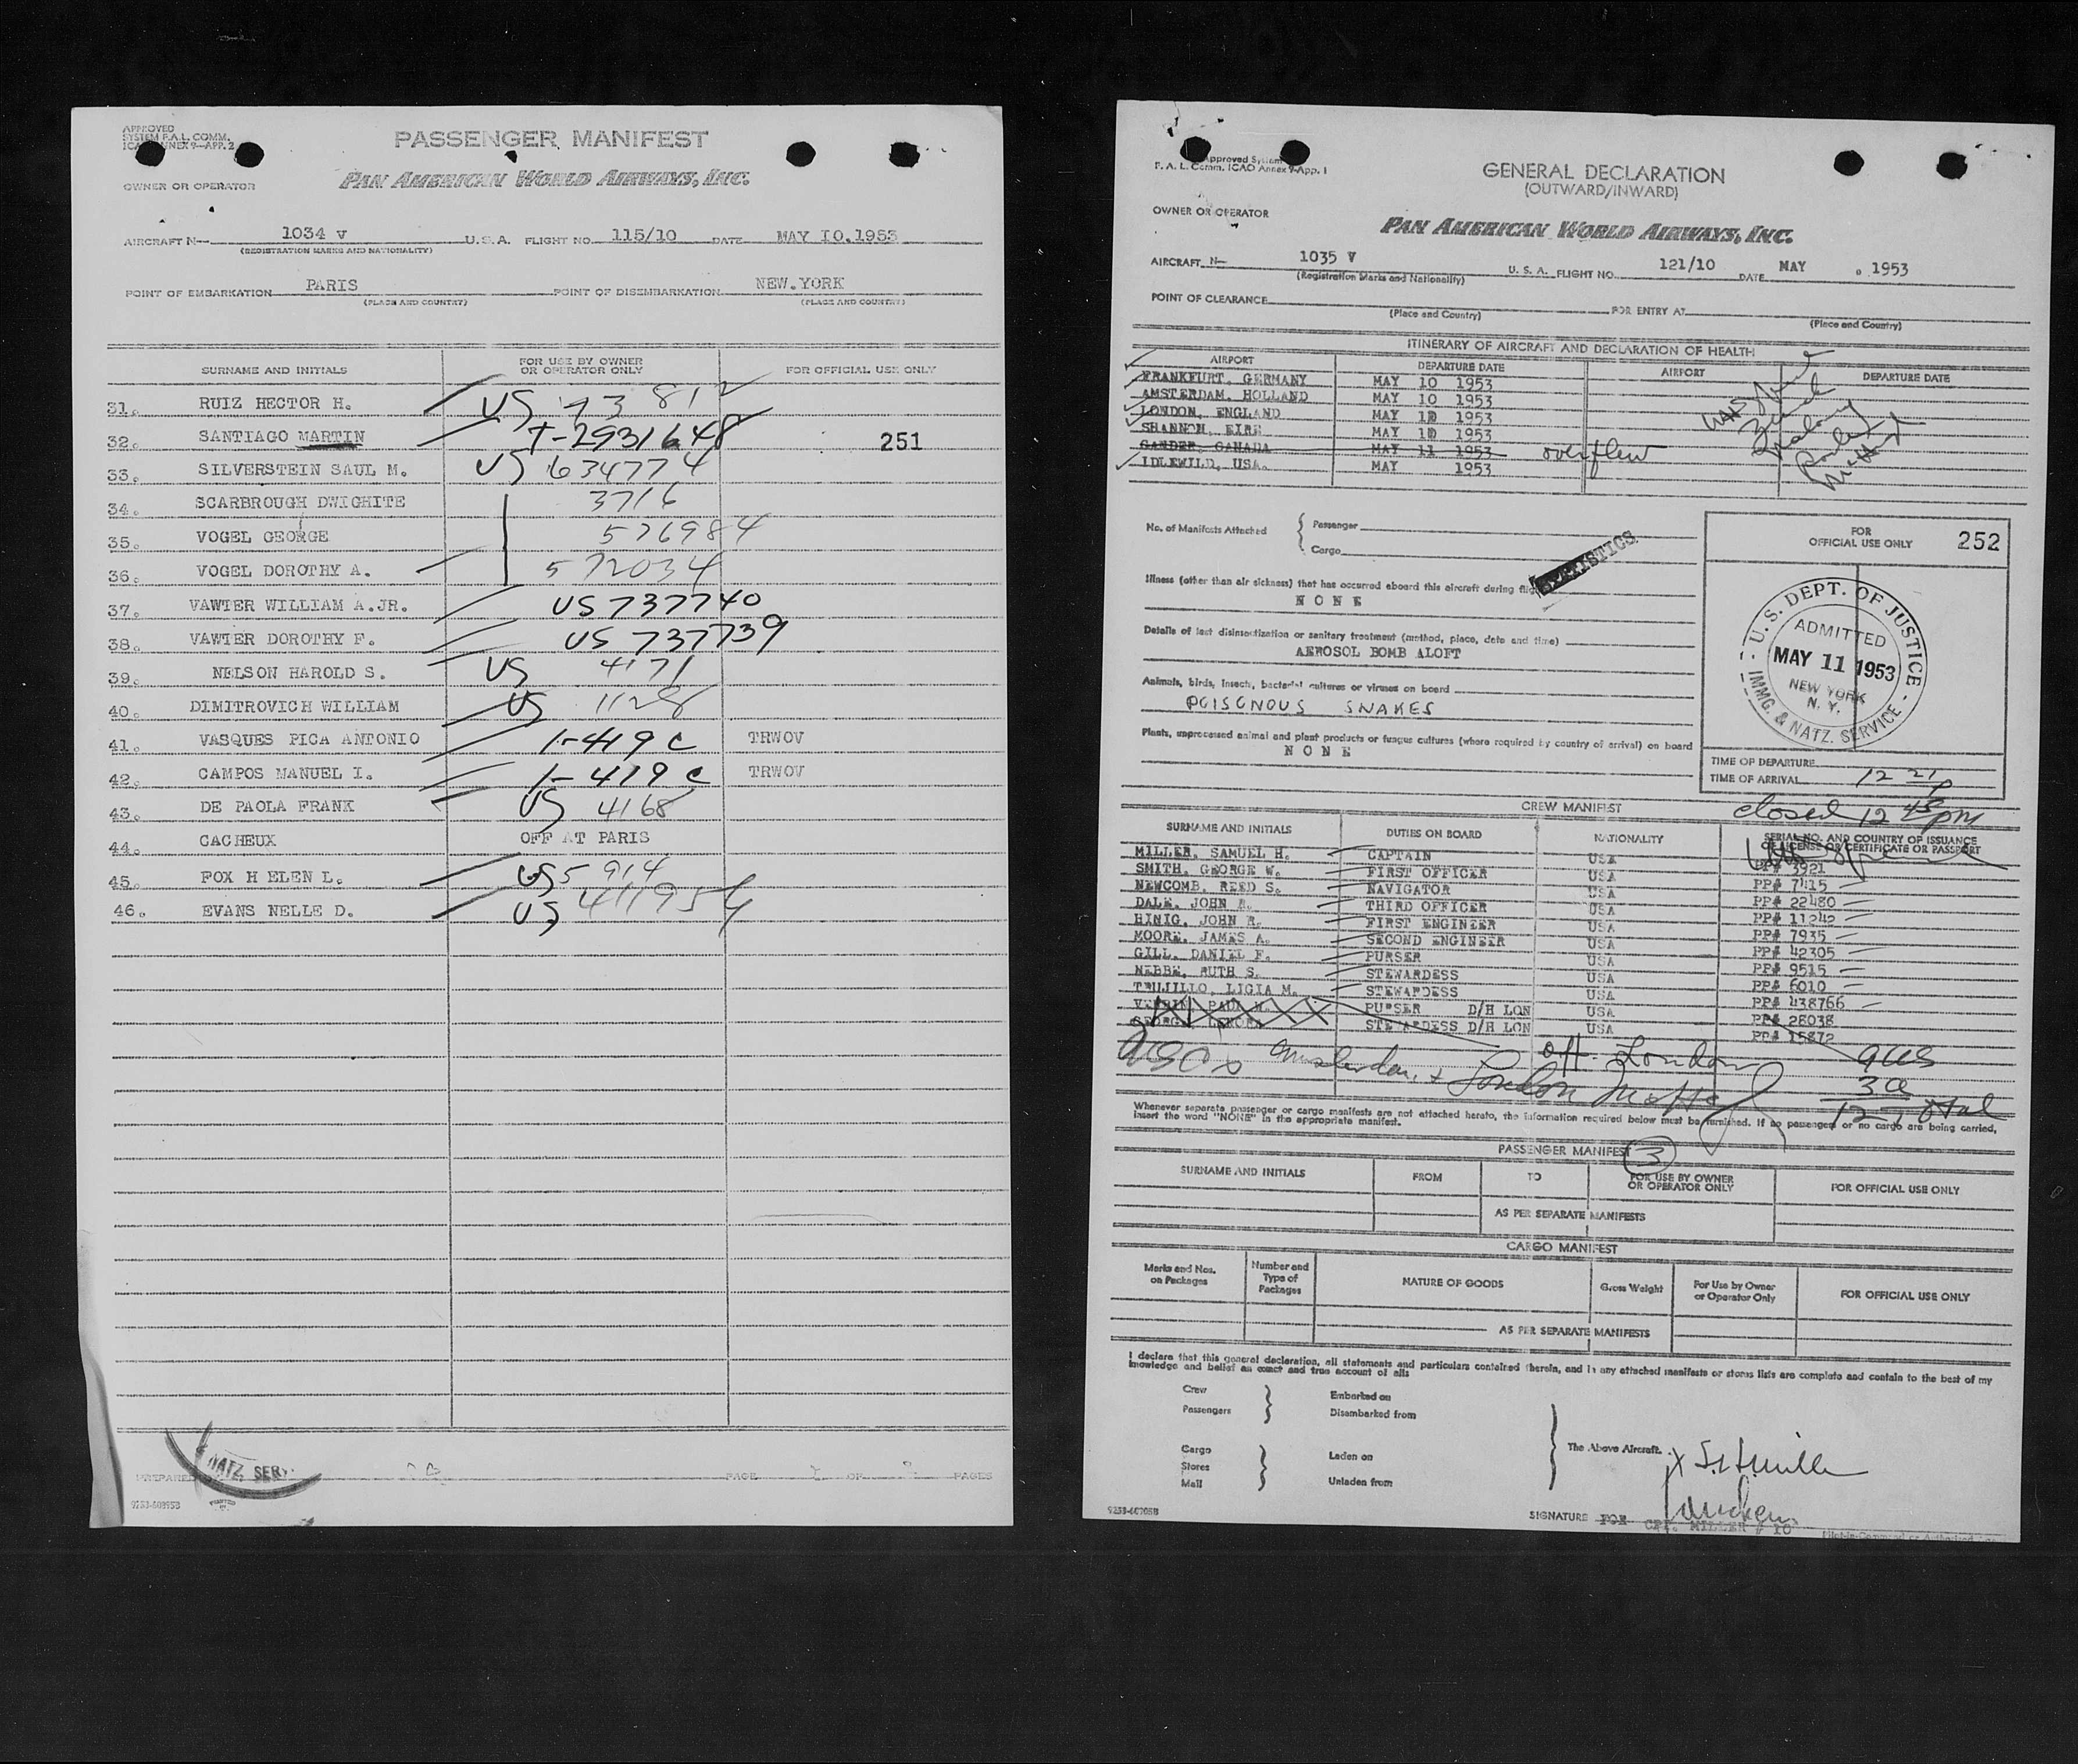 APPROVED
SYSTEM F.A.L. COMM.
ICAO ANNEX 9—APP. 2
PASSENGER MANIFEST
OWNER OR OPERATOR
PAN AMERICAN WORLD AIRWAYS, INC.
AIRCRAFT N— 1034 V U.S.A. FLIGHT NO. 115/10 DATE MAY IO.1953
(REGISTRATION MARKS AND NATIONALITY)
POINT OF EMBARKATION PARIS POINT OF DISEMBARKATION NEW.YORK
(PLACE AND COUNTRY) (PLACE AND COUNTRY)
SURNAME AND INITIALS FOR USE BY OWNER OR OPERATOR ONLY FOR OFFICIAL USE ONLY
31. RUIZ HECTOR H. US 73 812
32. SANTIAGO MARTIN T-2931648 251
33. SILVERSTEIN SAUL M. US 634774
34. SCARBROUGH DWIGHITE 3716
35. VOGEL GEORGE 576984
36. VOGEL DOROTHY A. 572034
37. VAWTER WILLIAM A.JR. US 737740
38. VAWTER DOROTHY F. US 737739
39. NELSON HAROLD S. US 4171
40. DIMITROVICH WILLIAM US 1128
41. VASQUES PICA ANTONIO 1-419 C TRWOV
42. CAMPOS MANUEL I. 1-419 C TRWOV
43. DE PAOLA FRANK US 4168
44. CACHEUX OFF AT PARIS
45. FOX H ELEN L. US 5 914
46. EVANS NELLE D. US 411954
NATZ. SERV.
PREPARED PAGE OF PAGES
9253-603953
Approved System
F. A. L. Comm. ICAO Annex 9-App. 1
GENERAL DECLARATION
(OUTWARD/INWARD)
OWNER OR OPERATOR
PAN AMERICAN WORLD AIRWAYS, INC.
AIRCRAFT N— 1035 V U. S. A. FLIGHT NO. 121/10 DATE MAY . 1953
(Registration Marks and Nationality)
POINT OF CLEARANCE FOR ENTRY AT
(Place and Country) (Place and Country)
ITINERARY OF AIRCRAFT AND DECLARATION OF HEALTH
AIRPORT DEPARTURE DATE AIRPORT DEPARTURE DATE
FRANKFURT, GERMANY MAY 10 1953
AMSTERDAM, HOLLAND MAY 10 1953
LONDON, ENGLAND MAY 10 1953
SHANNON, EIRE MAY 10 1953
GANDER, CANADA MAY 11 1953 overflew
IDLEWILD, USA. MAY 1953
No. of Manifests Attached { Passenger
Cargo
STATISTICS
FOR OFFICIAL USE ONLY 252
Illness (other than air sickness) that has occurred aboard this aircraft during flight
NONE
Details of last disinsectization or sanitary treatment (method, place, date and time)
AEROSOL BOMB ALOFT
Animals, birds, insects, bacterial cultures or viruses on board
POISONOUS SNAKES
Plants, unprocessed animal and plant products or fungus cultures (where required by country of arrival) on board
NONE
U. S. DEPT. OF JUSTICE
ADMITTED
MAY 11 1953
NEW YORK
N. Y.
IMMG. & NATZ. SERVICE
TIME OF DEPARTURE
TIME OF ARRIVAL 12 21 P
CREW MANIFEST closed 12 43 pm
SURNAME AND INITIALS DUTIES ON BOARD NATIONALITY SERIAL NO. AND COUNTRY OF ISSUANCE OF LICENSE OR CERTIFICATE OR PASSPORT
MILLER, SAMUEL H. CAPTAIN USA PP# 3921
SMITH, GEORGE W. FIRST OFFICER USA PP# 7415
NEWCOMB, REED S. NAVIGATOR USA PP# 22480
DALE, JOHN THIRD OFFICER USA PP# 11242
HINIG, JOHN R. FIRST ENGINEER USA PP# 7935
MOORE, JAMES A. SECOND ENGINEER USA PP# 42305
GILL, DANIEL F. PURSER USA PP# 9515
NEBBE, RUTH S. STEWARDESS USA PP# 6010
TRUJILLO, LIGIA M. STEWARDESS USA PP# 438766
PURSER D/H LON USA PP# 28038
STEWARDESS D/H LON USA PP# 15872
off London 9 US
Amsterdam, + London 3 a
12 Total
Whenever separate passenger or cargo manifests are not attached hereto, the information required below must be furnished. If no passengers or no cargo are being carried,
insert the word "NONE" in the appropriate manifest.
PASSENGER MANIFEST 3
SURNAME AND INITIALS FROM TO FOR USE BY OWNER OR OPERATOR ONLY FOR OFFICIAL USE ONLY
AS PER SEPARATE MANIFESTS
CARGO MANIFEST
Marks and Nos. on Packages Number and Type of Packages NATURE OF GOODS Gross Weight For Use by Owner or Operator Only FOR OFFICIAL USE ONLY
AS PER SEPARATE MANIFESTS
I declare that this general declaration, all statements and particulars contained therein, and in any attached manifests or stores lists are complete and contain to the best of my
knowledge and belief an exact and true account of all:
Crew Embarked on
Passengers Disembarked from
The Above Aircraft.
Cargo Laden on
Stores
Mail Unladen from
x S. H. Miller
SIGNATURE FOR CPT. MILLER # 10
Pilot-in-Command or Authorized